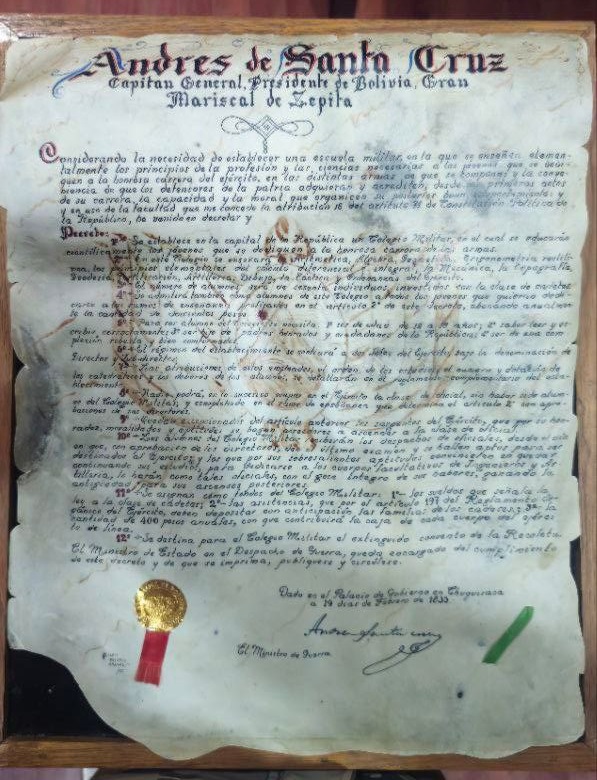 Andres de Santa Cruz
Capitan General, Presidente de Bolivia, Gran
Mariscal de Zepita
Considerando la necesidad de establecer una escuela militar, en la que se enseñen elemen-
talmente los principios de la profesion y las ciencias necesarias a los jovenes que se dedi-
quen a la honrosa carrera del ejército, en las distintas armas de que se compone y la conve-
niencia de que los defensores de la patria adquieran y acrediten, desde sus primeros actos
de su carrera, la capacidad y la moral que
y en uso de la facultad que me concede la atribución 16 del artículo de Constitución Política de
la República, he venido en decretar y
Decreto:
1º Se establece en la capital de la República un Colegio Militar, en el cual se educarán
científicamente los jovenes que se dediquen a la honrosa carrera de las armas.
En este Colegio se enseñará Aritmética, Algebra, Geometría, Trigonometría rectilí-
nea, los principios elementales del cálculo diferencial e integral, la Mecánica, la Topografía
Geodesia, Fortificación, Artillería, Dibujo, la Táctica y Ordenanzas del Ejército.
El número de alumnos será de sesenta individuos, investidos con la clase de cadetes
Se admitirá también como alumnos de este Colegio a todos los jovenes que quieran dedi-
carse a los ramos de enseñanza, designados en el artículo 2º de este abonando anualmen-
te la cantidad de doscientos pesos.
Para ser alumno del Colegio necesita: 1º ser de edad de 12 a años; 2º saber leer y es-
cribir correctamente; 3º ser hijo de padres honrados y ciudadanos de la República; ser de una com-
plexión robusta y bien conformada.
El régimen del establecimiento se cometerá a dos Jefes del Ejército, bajo la denominación de
Director y Sub-director.
Las atribuciones de estos empleados, el orden de los estudios, el número y dotación de
los catedráticos y los deberes de los alumnos, se detallarán en el reglamento complementario del esta-
blecimiento.
8º Nadie podrá, en lo sucesivo ocupar en el Ejército la clase de oficial, sin haber sido alum-
no del Colegio Militar, y completado en él el ramo de enseñanza que determina el artículo 2º con apro-
baciones de sus directores.
9º Quedan exceptuados del artículo anterior los sargentos del Ejército, que por su hon-
radez, moralidad y aptitudes, se hagan acreedores a ascender a la clase de oficial.
10º Los alumnos del Colegio Militar recibirán los despachos de oficiales, desde el día
en que, con aprobación de los directores, den el último examen y se hallen aptos para ser
destinados al Ejército; y los que por sus sobresalientes aptitudes convinieren en quedar
continuando sus estudios para dedicarse a los cuerpos facultativos de Ingenieros y Ar-
tillería, lo harán como tales oficiales, con el goce íntegro de sus haberes, ganando la
antigüedad para sus ascensos posteriores.
11º Se asignan como fondos del Colegio Militar: 1º los sueldos que señala la
ley a la clase de cadetes; 2º las asistencias, que por el artículo 197 del Reglamento Or-
gánico del Ejército, deben depositar con anticipación las familias de los cadetes; 3º la
cantidad de 400 pesos anuales, con que contribuirá la caja de cada cuerpo del ejérci-
to de línea.
12º Se destina para el Colegio Militar el extinguido convento de la Recoleta.
El Ministro de Estado en el Despacho de Guerra, queda encargado del cumplimiento
de este decreto y de que se imprima, publíquese y circúlese.
Dado en el Palacio de Gobierno en Chuquisaca
a 19 días de Febrero de 1833.
Andres Santa Cruz
El Ministro de Guerra